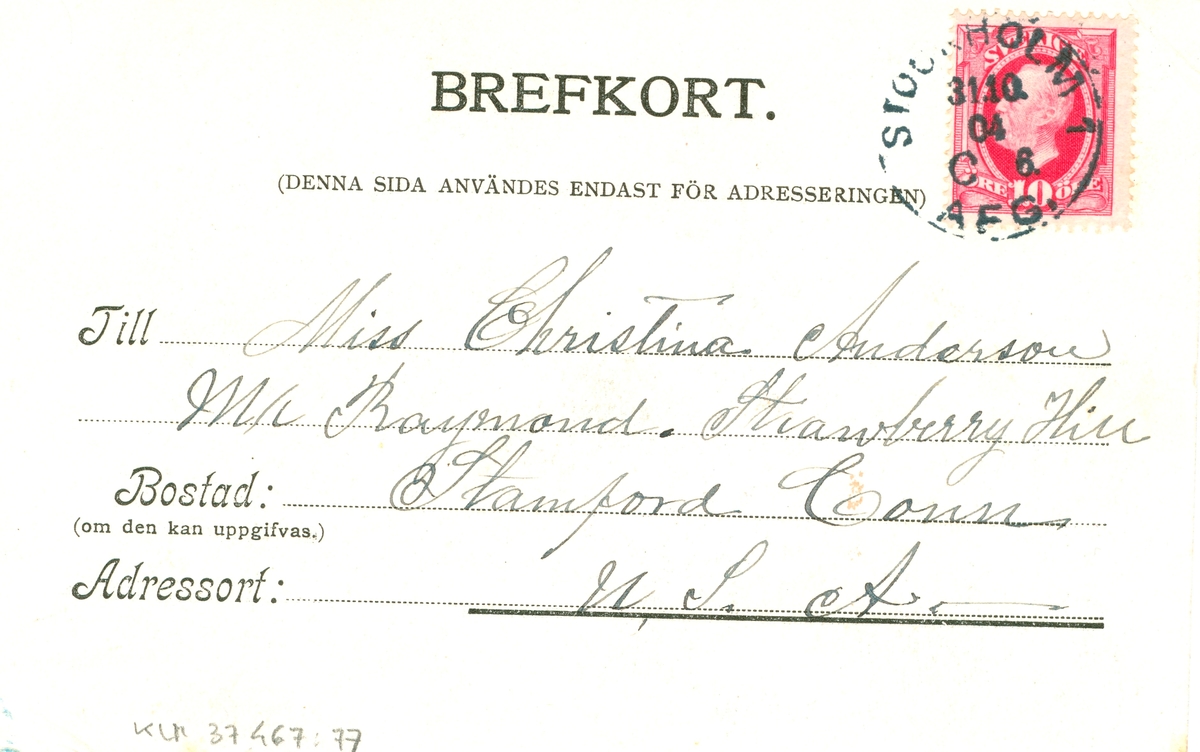 BREFKORT.
(DENNA SIDA ANVÄNDES ENDAST FÖR ADRESSERINGEN)
SVERIGE
10 ÖRE
STOCKHOLM 1
31.10.
04
C 6.
AFG.
Till Miss Christina Anderson
Mr Raymond. Strawberry Hill
Bostad: Stamford Conn,
(om den kan uppgifvas.)
Adressort: U, S. A.
KLM 37467:77